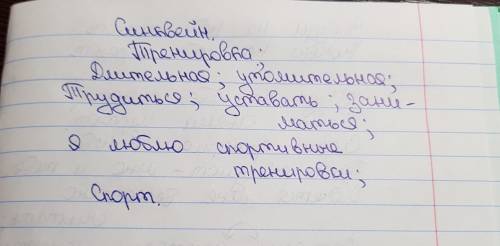 Синквейн.
Тренировка;
Длительная; утомительная;
Трудиться; уставать; зани-
маться;
я люблю спортивные
тренировки;
Спорт.